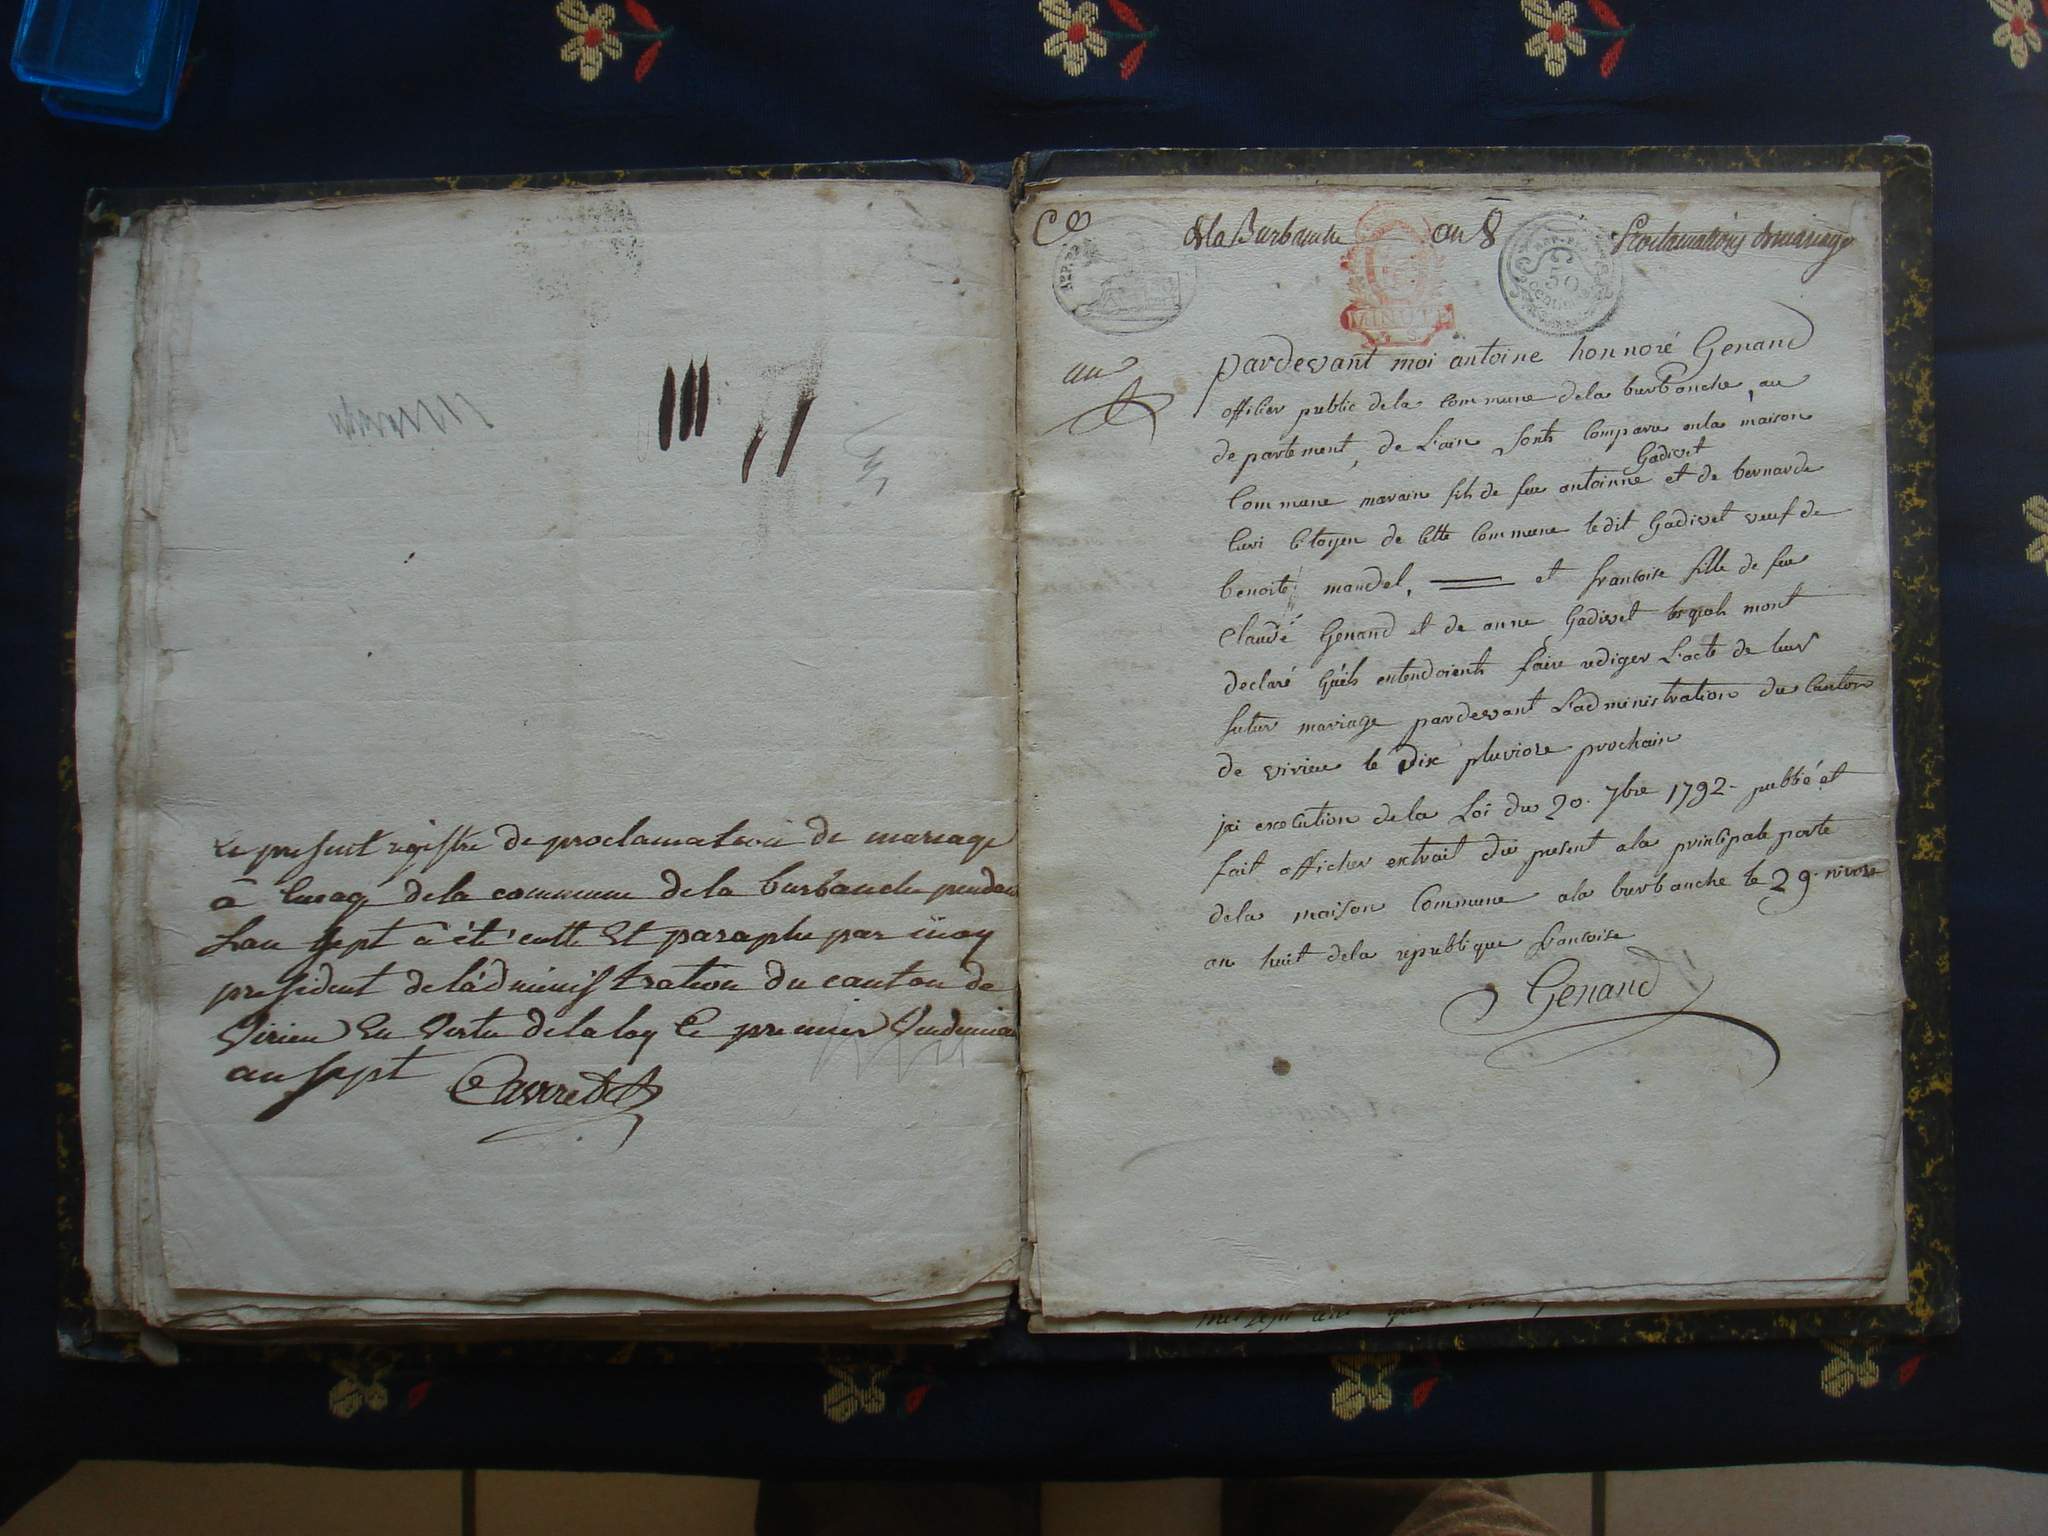 Le present registre de proclamation de mariage
à lusage dela commune dela burbanche pendan
Lan sept à été cotté Et paraphé par moy
president deladministration du canton de
Virieu En Vertu delaloy le premier Vendemiai
an sept
dela Burbanche an 8 Proclamations de mariage
APP. PA
MINUTE
50
centim
un
pardevant moi antoine honnoré Genand
officier public dela commune dela burbanche, au
departement, de L'ain sonts comparu enla maison
Gadivet
Commune marain fils de feu antoinne et de bernarde
Cuvi Citoyen de Cette Commune ledit Gadivet veuf de
benoite mandel, et francoise fille de feu
Claude Genand et de anne Gadivet lesquels mont
declaré Quéls entendoients faire rediger L'acte de leur
futur mariage pardevant L'administration du Canton
de virieu le dix pluviose prochain
jai execution dela Loi du 20. 7bre 1792 - publié et
fait afficher extrait du present ala principale porte
dela maison Commune ala burbanche le 29. nivose
an huit dela republique francoise
Genand